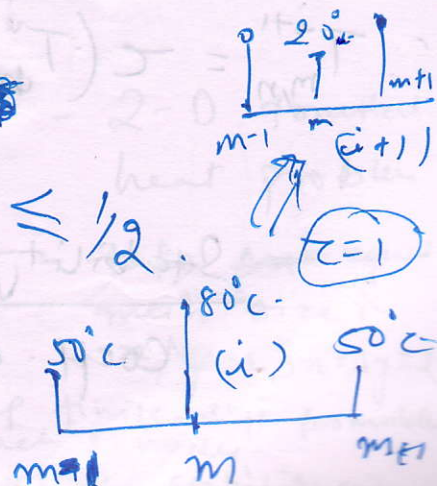 20°c
m-1 m m+1
(i+1)
≤ 1/2.
τ=1
80°c
50°c (i) 50°c
m-1 m m+1